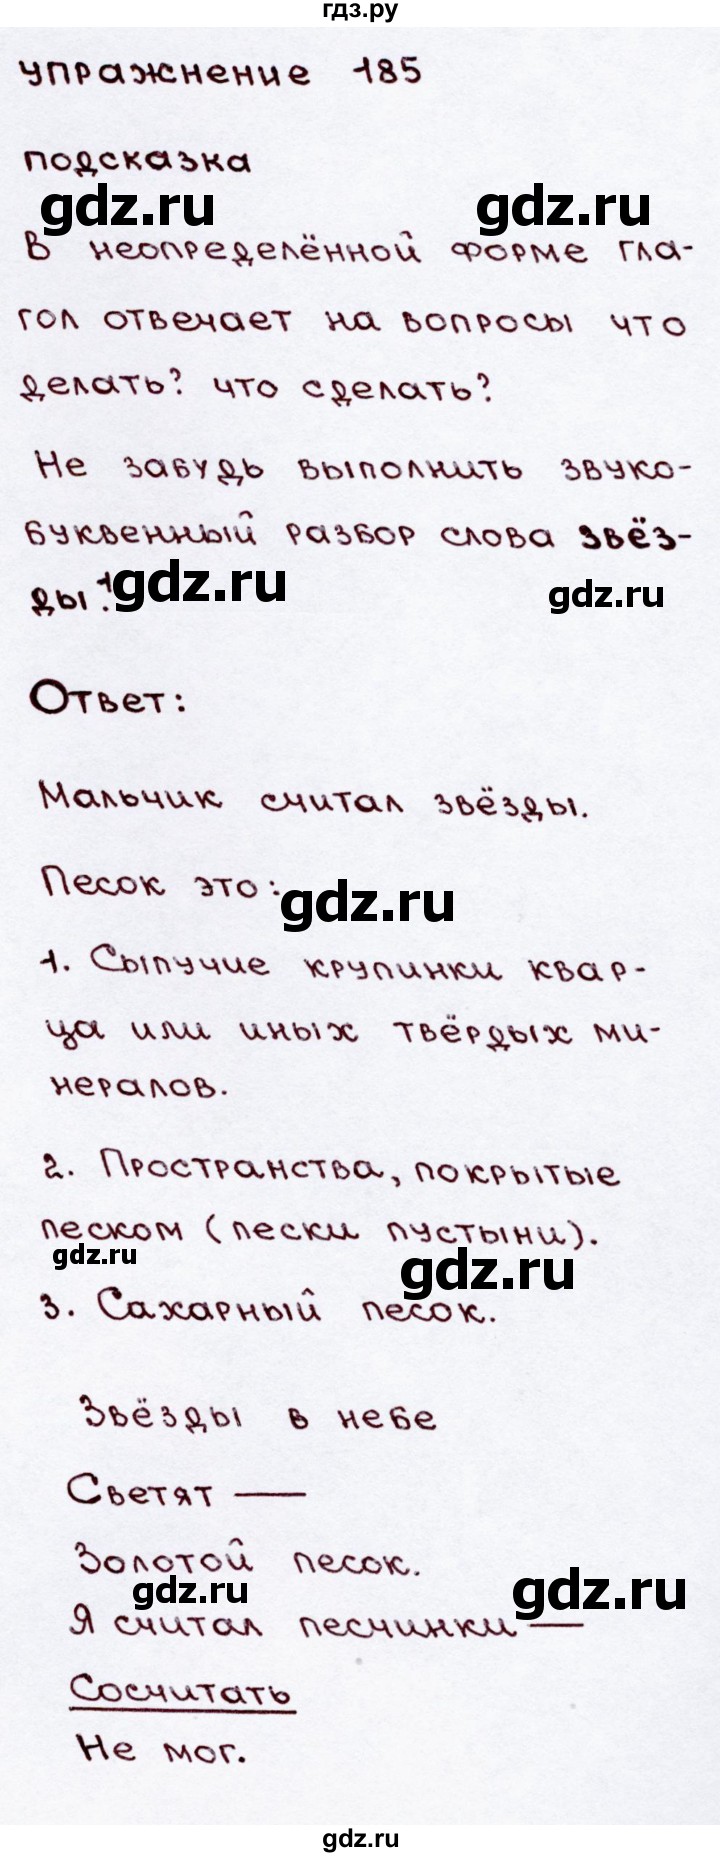 гдз.ру
упражнение 185
подсказка
gdz.ru gdz.ru
В неопределённой форме гла-
гол отвечает на вопросы что
делать? что сделать?
Не забудь выполнить звуко-
буквенный разбор слова звёз-
ды¹.
gdz.ru gdz.ru
Ответ:
Мальчик считал звёзды.
Песок это:
gdz.ru
1. Сыпучие крупинки квар-
ца или иных твёрдых ми-
нералов.
2. Пространства, покрытые
песком (пески пустыни).
gdz.ru gdz.ru
3. Сахарный песок.
Звёзды в небе
Светят —
Золотой песок.
gdz.ru gdz.ru
Я считал песчинки —
Сосчитать
Не мог.
gdz.ru